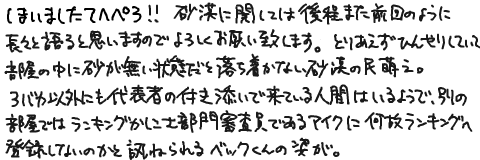 しまいましたてへぺろ!! 砂漠に関しては後程また前回のように
長々と語ると思いますのでよろしくお願い致します。とりあえずひんやりしていて
部屋の中に砂が無い状態だと落ち着かない砂漠の民萌え。
3バカ以外にも代表者の付き添いで来ている人間はいるようで、別の
部屋ではランキングかしこさ部門審査員であるアイクに何故ランキングへ
登録しないのかと訊ねられるベックくんの姿が。